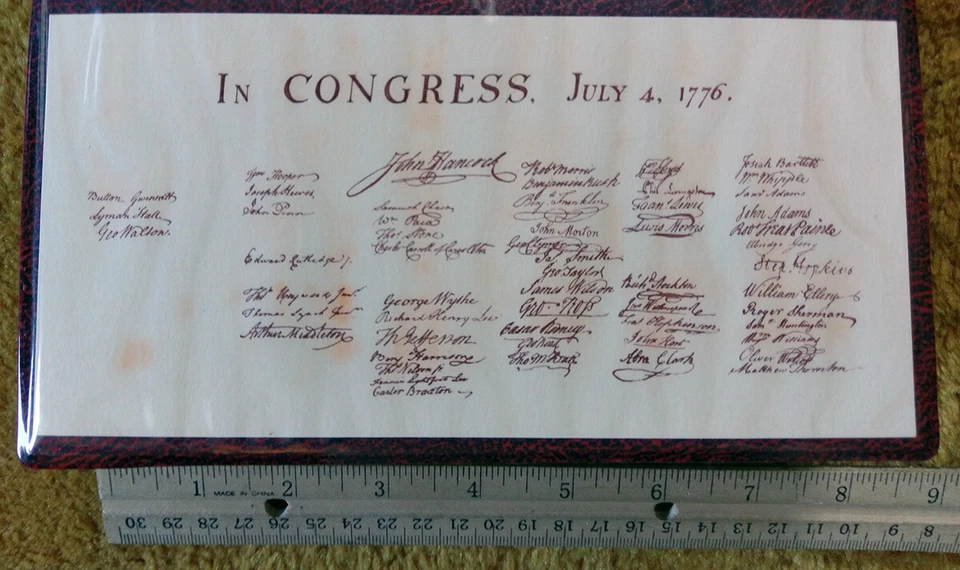 In CONGRESS, July 4, 1776.
Button Gwinnett
Lyman Hall
Geo Walton.
Wm Hooper
Joseph Hewes,
John Penn
Edward Rutledge /.
Thos Heyward Junr.
Thomas Lynch Junr.
Arthur Middleton
John Hancock
Samuel Chase
Wm Paca
Thos Stone
Charles Carroll of Carrollton
George Wythe
Richard Henry Lee
Th Jefferson
Benj Harrison
Thos Nelson jr
Francis Lightfoot Lee
Carter Braxton
Robt Morris
Benjamin Rush
Benj Franklin
John Morton
Geo Clymer
Jas Smith
Geo Taylor
James Wilson
Geo Ross
Caesar Rodney
Geo Read
Tho M:Kean
Wm Floyd
Phil. Livingston
Frans Lewis
Lewis Morris
Richd Stockton
Jno Witherspoon
Fras Hopkinson
John Hart
Abra Clark
Josiah Bartlett
Wm Whipple
Saml Adams
John Adams
Robt Treat Paine
Elbridge Gerry
Step Hopkins
William Ellery
Roger Sherman
Saml Huntington
Wm Williams
Oliver Wolcott
Matthew Thornton
1 MADE IN CHINA 2 3 4 5 6 7 8 9
30 29 28 27 26 25 24 23 22 21 20 19 18 17 16 15 14 13 12 11 10 9 8